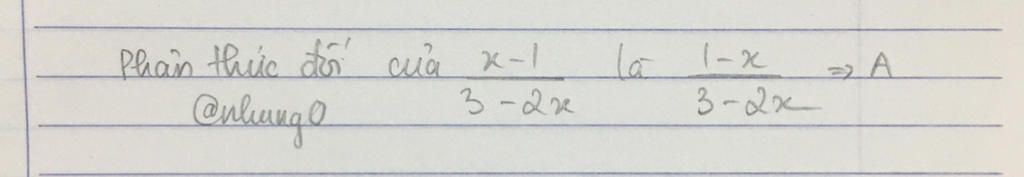 Phân thức đối của \frac{x-1}{3-2x} là \frac{1-x}{3-2x} => A
@nhung0